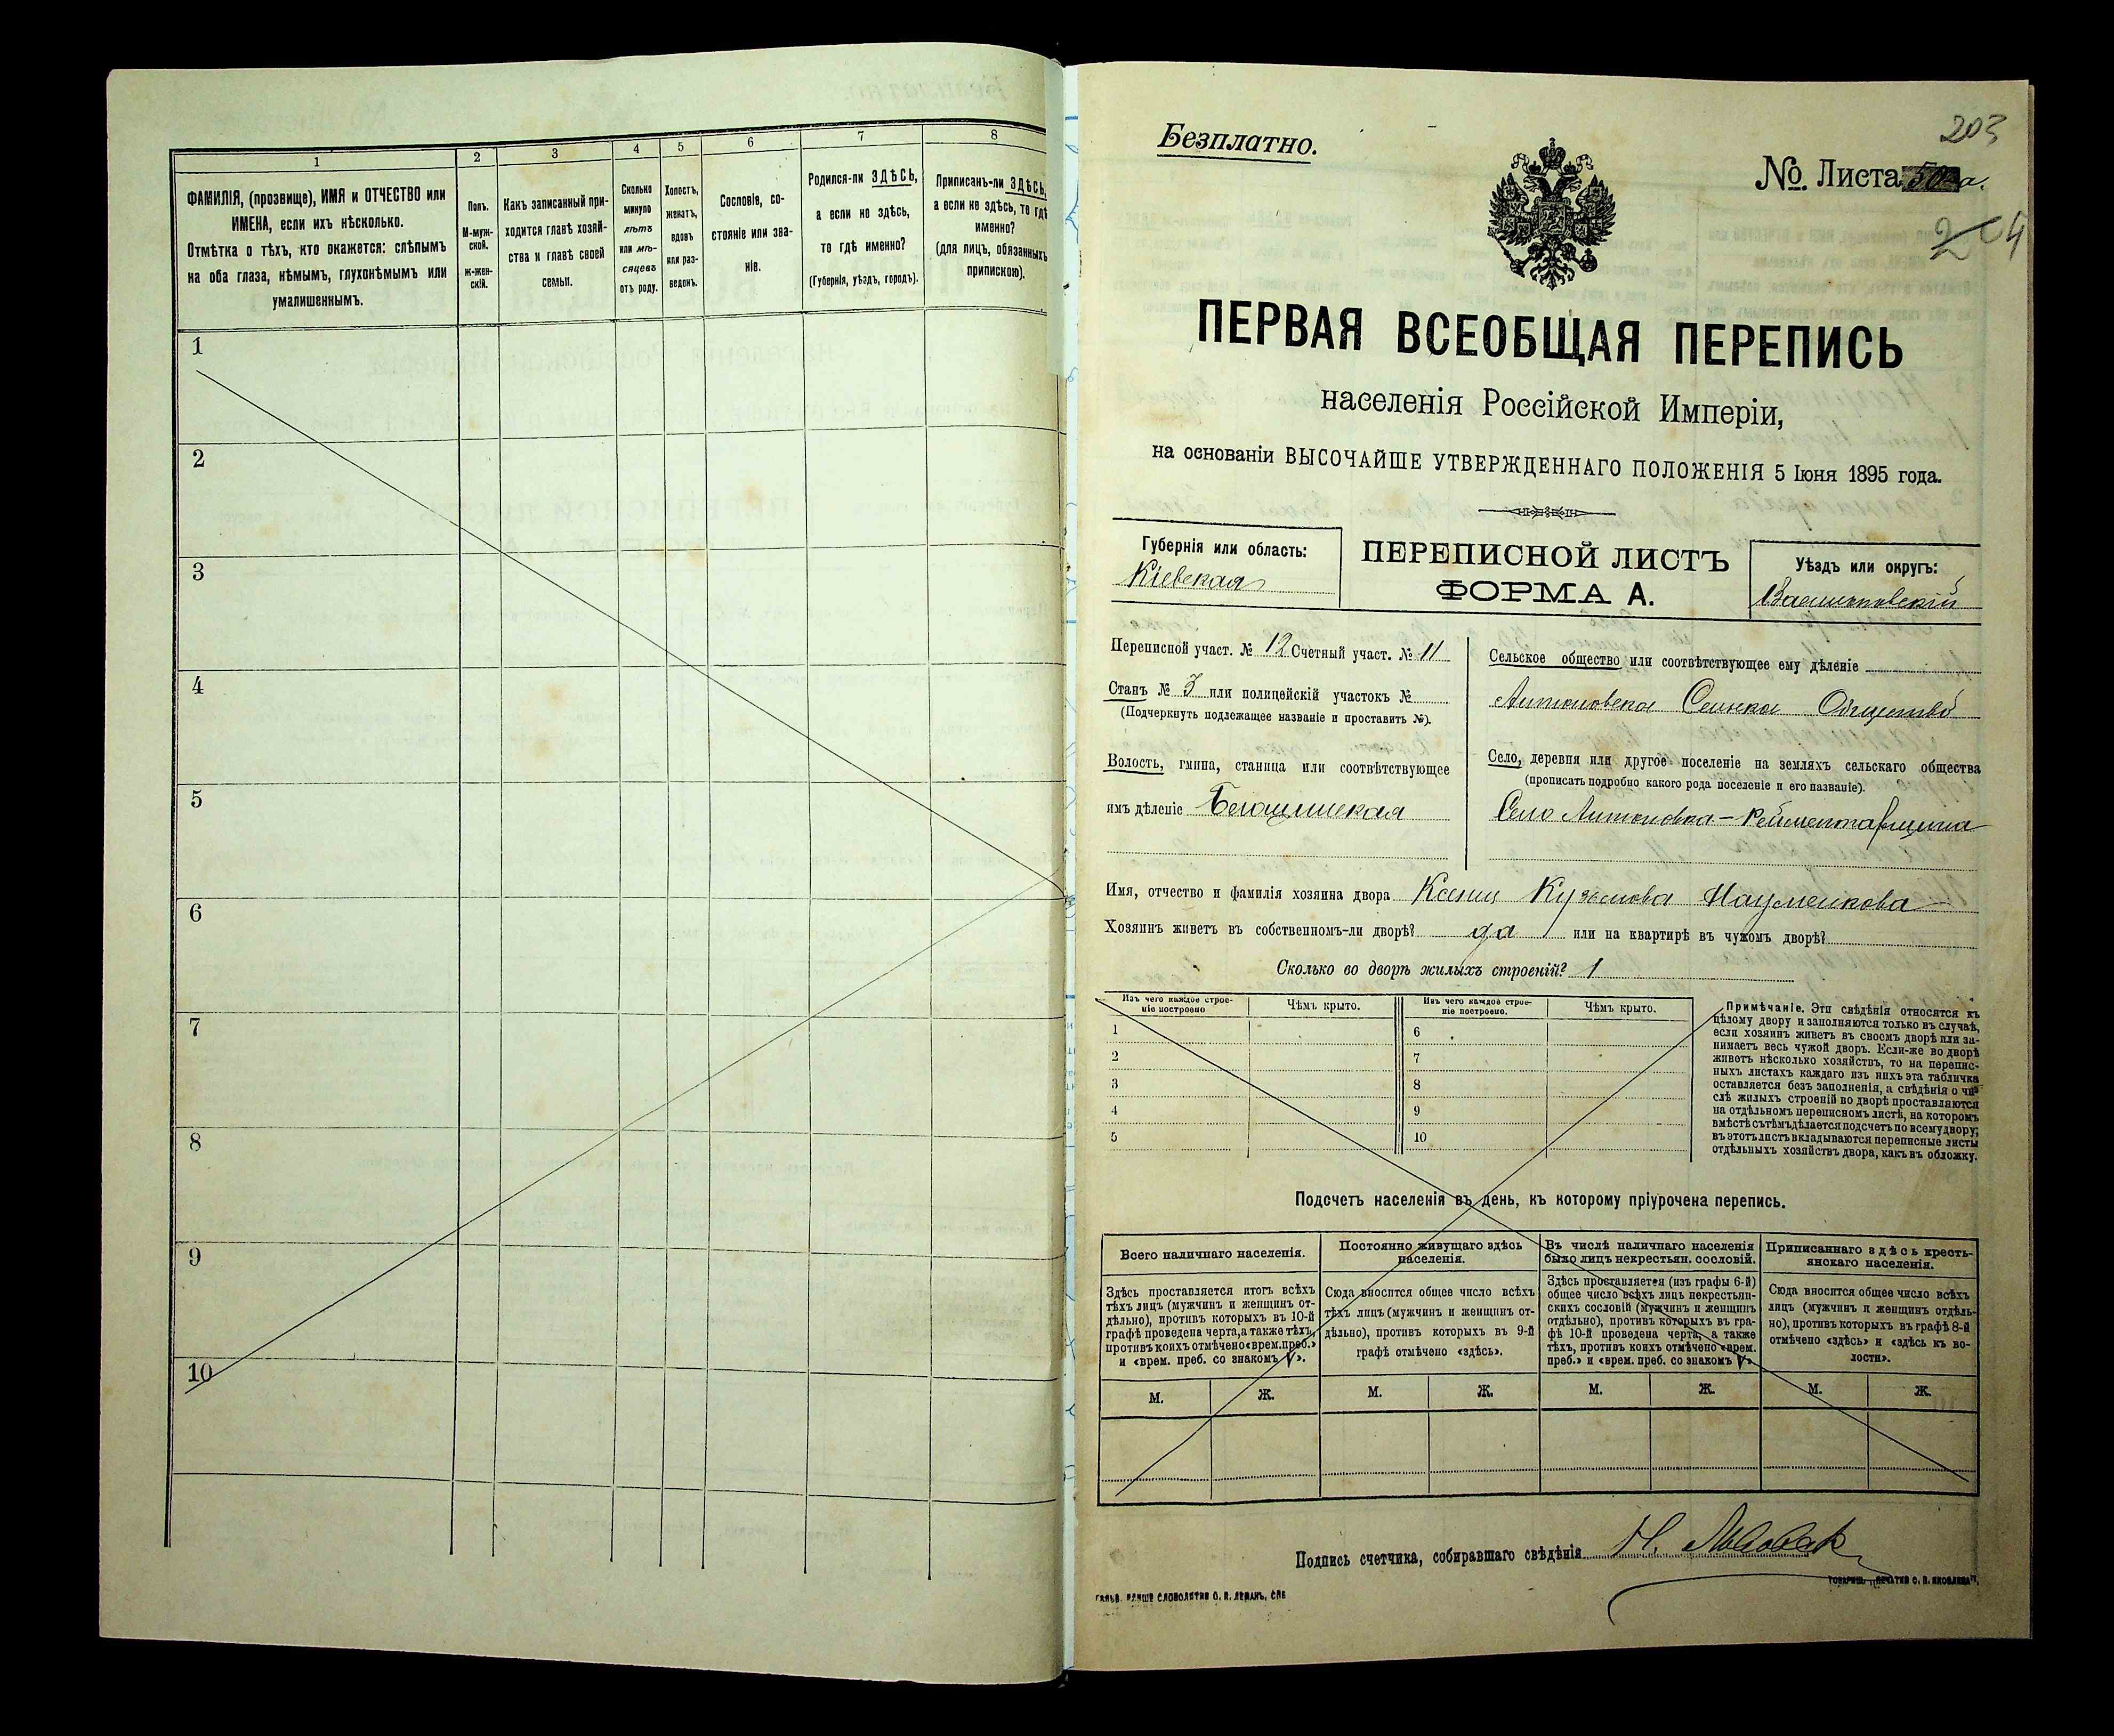 1
2
3
4
5
6
7
8
ФАМИЛІЯ, (прозвище), ИМЯ и ОТЧЕСТВО или
ИМЕНА, если ихъ нѣсколько.
Отмѣтка о тѣхъ, кто окажется: слѣпымъ
на оба глаза, нѣмымъ, глухонѣмымъ или
умалишеннымъ.
Полъ.
М-муж-
ской.
ж-жен-
скій.
Какъ записанный при-
ходится главѣ хозяй-
ства и главѣ своей
семьи.
Сколько
минуло
лѣтъ
или мѣ-
сяцевъ
отъ роду.
Холостъ,
женатъ,
вдовъ
или раз-
веденъ.
Сословіе, со-
стояніе или зва-
ніе.
Родился-ли ЗДѢСЬ,
а если не здѣсь,
то гдѣ именно?
(Губернія, уѣздъ, городъ).
Приписанъ-ли ЗДѢСЬ,
а если не здѣсь, то гдѣ
именно?
(для лицъ, обязанныхъ
припискою).
1
2
3
4
5
6
7
8
9
10
203
Безплатно.
№ Листа а.
4
ПЕРВАЯ ВСЕОБЩАЯ ПЕРЕПИСЬ
населенія Россійской Имперіи,
на основаніи ВЫСОЧАЙШЕ УТВЕРЖДЕННАГО ПОЛОЖЕНІЯ 5 Іюня 1895 года.
Губернія или область:
Кіевская
ПЕРЕПИСНОЙ ЛИСТЪ
ФОРМА А.
Уѣздъ или округъ:
Васильковскій
Переписной участ. № 12 Счетный участ. № 11
Станъ № 3 или полицейскій участокъ №
(Подчеркнуть подлежащее названіе и проставить №).
Волость, гмина, станица или соотвѣтствующее
имъ дѣленіе
Сельское общество или соотвѣтствующее ему дѣленіе
Антоновска Общество
Село, деревня или другое поселеніе на земляхъ сельскаго общества
(прописать подробно какого рода поселеніе и его названіе).
Село Антоновка - Рейментарщина
Имя, отчество и фамилія хозяина двора Ксенія Кузьмова Науменкова
Хозяинъ живетъ въ собственномъ-ли дворѣ? да или на квартирѣ въ чужомъ дворѣ?
Сколько во дворѣ жилыхъ строеній? 1
Изъ чего каждое строе-
ніе построено
Чѣмъ крыто.
Изъ чего каждое строе-
ніе построено.
Чѣмъ крыто.
1
2
3
4
5
6
7
8
9
10
Примѣчаніе. Эти свѣдѣнія относятся къ
цѣлому двору и заполняются только въ случаѣ,
если хозяинъ живетъ въ своемъ дворѣ или за-
нимаетъ весь чужой дворъ. Если-же во дворѣ
живетъ нѣсколько хозяйствъ, то на перепис-
ныхъ листахъ каждаго изъ нихъ эта табличка
оставляется безъ заполненія, а свѣдѣнія о чи-
слѣ жилыхъ строеній во дворѣ проставляются
на отдѣльномъ переписномъ листѣ, на которомъ
вмѣстѣ съ тѣмъ дѣлается подсчетъ по всему двору;
въ этотъ листъ вкладываются переписные листы
отдѣльныхъ хозяйствъ двора, какъ въ обложку.
Подсчетъ населенія въ день, къ которому пріурочена перепись.
Всего наличнаго населенія.
Здѣсь проставляется итогъ всѣхъ
тѣхъ лицъ (мужчинъ и женщинъ от-
дѣльно), противъ которыхъ въ 10-й
графѣ проведена черта, а также тѣхъ,
противъ коихъ отмѣчено «врем. преб.»
и «врем. преб. со знакомъ V».
Постоянно живущаго здѣсь
населенія.
Сюда вносится общее число всѣхъ
тѣхъ лицъ (мужчинъ и женщинъ от-
дѣльно), противъ которыхъ въ 9-й
графѣ отмѣчено «здѣсь».
Въ числѣ наличнаго населенія
было лицъ некрестьян. сословій.
Здѣсь проставляется (изъ графы 6-й)
общее число всѣхъ лицъ некрестьян-
скихъ сословій (мужчинъ и женщинъ
отдѣльно), противъ которыхъ въ гра-
фѣ 10-й проведена черта, а также
тѣхъ, противъ коихъ отмѣчено «врем.
преб.» и «врем. преб. со знакомъ V».
Приписаннаго здѣсь кресть-
янскаго населенія.
Сюда вносится общее число всѣхъ
лицъ (мужчинъ и женщинъ отдѣль-
но), противъ которыхъ въ графѣ 8-й
отмѣчено «здѣсь» и «здѣсь къ во-
лости».
М. Ж. М. Ж. М. Ж. М. Ж.
Подпись счетчика, собиравшаго свѣдѣнія Н.
СЛОВОЛИТНИ О. И. ЛЕМАНЪ, СПБ
ТОВАРИЩ. „ПЕЧАТНЯ С. П. ЯКОВЛЕВА".